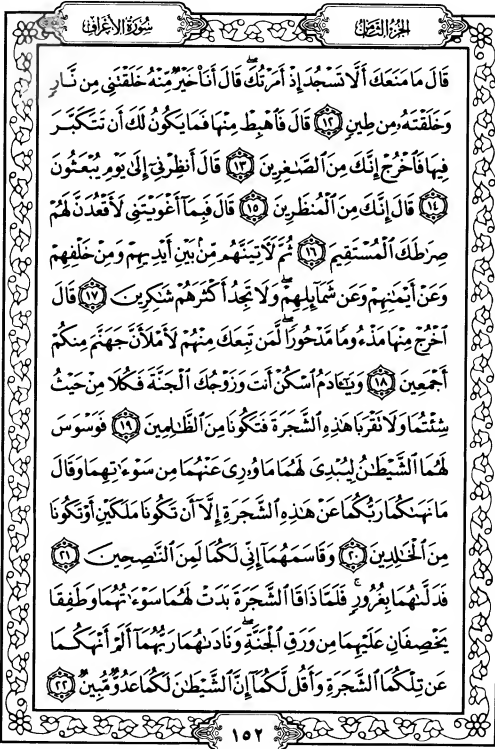 سُورَةُ الأَعْرَافِ
الجُزْءُ الثَّامِنُ
قَالَ مَا مَنَعَكَ أَلَّا تَسْجُدَ إِذْ أَمَرْتُكَ ۖ قَالَ أَنَا۠ خَيْرٌ مِّنْهُ خَلَقْتَنِي مِن نَّارٍ
وَخَلَقْتَهُۥ مِن طِينٍ ١٢ قَالَ فَٱهْبِطْ مِنْهَا فَمَا يَكُونُ لَكَ أَن تَتَكَبَّرَ
فِيهَا فَٱخْرُجْ إِنَّكَ مِنَ ٱلصَّٰغِرِينَ ١٣ قَالَ أَنظِرْنِيٓ إِلَىٰ يَوْمِ يُبْعَثُونَ
١٤ قَالَ إِنَّكَ مِنَ ٱلْمُنظَرِينَ ١٥ قَالَ فَبِمَآ أَغْوَيْتَنِي لَأَقْعُدَنَّ لَهُمْ
صِرَٰطَكَ ٱلْمُسْتَقِيمَ ١٦ ثُمَّ لَءَاتِيَنَّهُم مِّنۢ بَيْنِ أَيْدِيهِمْ وَمِنْ خَلْفِهِمْ
وَعَنْ أَيْمَٰنِهِمْ وَعَن شَمَآئِلِهِمْ ۖ وَلَا تَجِدُ أَكْثَرَهُمْ شَٰكِرِينَ ١٧ قَالَ
ٱخْرُجْ مِنْهَا مَذْءُومًا مَّدْحُورًا ۖ لَّمَن تَبِعَكَ مِنْهُمْ لَأَمْلَأَنَّ جَهَنَّمَ مِنكُمْ
أَجْمَعِينَ ١٨ وَيَٰٓـَٔادَمُ ٱسْكُنْ أَنتَ وَزَوْجُكَ ٱلْجَنَّةَ فَكُلَا مِنْ حَيْثُ
شِئْتُمَا وَلَا تَقْرَبَا هَٰذِهِ ٱلشَّجَرَةَ فَتَكُونَا مِنَ ٱلظَّٰلِمِينَ ١٩ فَوَسْوَسَ
لَهُمَا ٱلشَّيْطَٰنُ لِيُبْدِيَ لَهُمَا مَا وُۥرِيَ عَنْهُمَا مِن سَوْءَٰتِهِمَا وَقَالَ
مَا نَهَىٰكُمَا رَبُّكُمَا عَنْ هَٰذِهِ ٱلشَّجَرَةِ إِلَّآ أَن تَكُونَا مَلَكَيْنِ أَوْ تَكُونَا
مِنَ ٱلْخَٰلِدِينَ ٢٠ وَقَاسَمَهُمَآ إِنِّي لَكُمَا لَمِنَ ٱلنَّٰصِحِينَ ٢١
فَدَلَّىٰهُمَا بِغُرُورٍ ۚ فَلَمَّا ذَاقَا ٱلشَّجَرَةَ بَدَتْ لَهُمَا سَوْءَٰتُهُمَا وَطَفِقَا
يَخْصِفَانِ عَلَيْهِمَا مِن وَرَقِ ٱلْجَنَّةِ ۖ وَنَادَىٰهُمَا رَبُّهُمَآ أَلَمْ أَنْهَكُمَا
عَن تِلْكُمَا ٱلشَّجَرَةِ وَأَقُل لَّكُمَآ إِنَّ ٱلشَّيْطَٰنَ لَكُمَا عَدُوٌّ مُّبِينٌ ٢٢
١٥٢